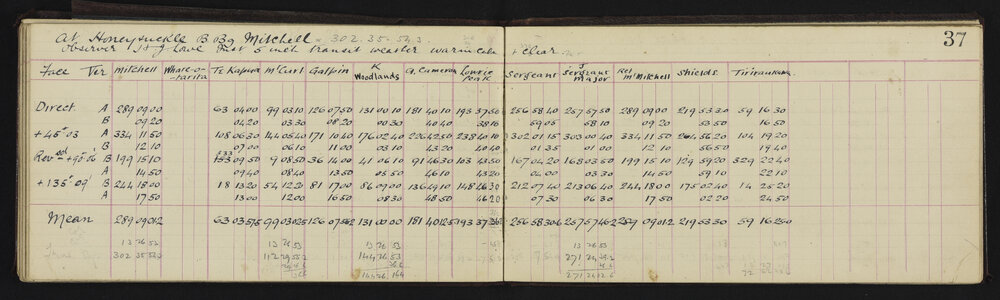 37
At Honeysuckle B Bg Mitchell = 302.35.52.3
Observer H J Lowe Inst 5 inch transit weather warm calm & clear
Face Ver Mitchell Whare-o-tarita Te Kapura McCurl Galpin K Woodlands G. Cameron Lowrie Peak Sergeant J Sergeant Major Rel m Mitchell Shields Tirirankawa
Direct A 289 09 00 63 04 00 99 03 10 126 07 50 131 00 10 181 40 10 193 37 50 256 58 40 257 57 50 289 09 00 219 53 30 59 16 30
B 09 20 04 20 03 30 08 20 00 30 40 40 38 10 59 05 58 10 09 20 53 50 16 50
+45° 03 A 334 11 50 108 06 30 144 05 40 171 10 40 176 02 40 226 42 50 238 40 10 302 01 15 303 00 40 334 11 50 264 56 20 104 19 20
B 12 10 07 00 06 10 11 00 03 10 43 20 40 40 01 35 01 00 12 10 56 50 19 40
Rev +90° 06' B 199 15 10 153 09 50 9 08 50 36 14 00 41 06 10 91 46 30 103 43 50 167 04 20 168 03 50 199 15 10 129 59 20 329 22 40
A 14 50 09 40 08 40 13 50 05 50 46 10 43 20 04 00 03 30 14 50 59 10 22 10
+135° 09' B 244 18 00 18 13 20 54 12 20 81 17 00 86 09 00 136 49 10 148 46 30 212 07 40 213 06 40 244 18 00 175 02 40 14 25 20
A 17 50 13 00 12 00 16 50 08 30 48 50 46 20 07 30 06 30 17 50 02 20 24 50
Mean 289 09 01.2 63 03 57.5 99 03 02.5 126 07 56.2 131 00 00 181 40 12.5 193 37 36.2 256 58 30.6 257 57 46.2 289 09 01.2 219 53 30 59 16 25.0
13 26 53 13 26 53 13 26 53 13 26 53
302 35 52.0 112 29 55.2 144 26 53 271 24 39.2
144 26 16.4 271 24 32.6